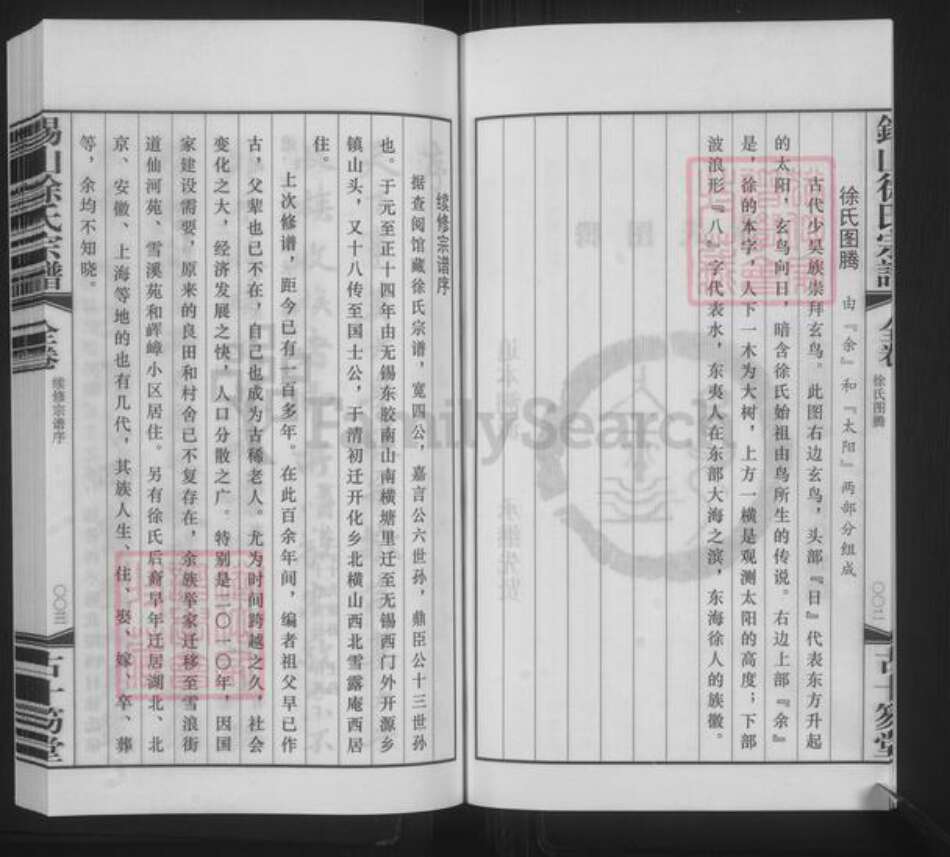 徐氏图腾 由『余』和『太阳』两部分组成
古代少昊族崇拜玄鸟。此图右边玄鸟，头部『日』代表东方升起
的太阳，玄鸟向日，暗含徐氏始祖由鸟所生的传说。右边上部『余』
是，徐的本字，人下一木为大树，上方一横是观测太阳的高度；下部
波浪形『八』字代表水，东夷人在东部大海之滨，东海徐人的族徽。
徐氏图腾
〇〇二
续修宗谱序
据查阅馆藏徐氏宗谱，宽四公，嘉言公六世孙，鼎臣公十三世孙
也。于元至正十四年由无锡东胶南山南横塘里迁至无锡西门外开源乡
镇山头，又十八传至国士公，于清初迁开化乡北横山西北雪露庵西居
住。
上次修谱，距今已有一百多年。在此百余年间，编者祖父早已作
古，父辈也已不在，自己也成为古稀老人。尤为时间跨越之久，社会
变化之大，经济发展之快，人口分散之广。特别是二〇一〇年，因国
家建设需要，原来的良田和村舍已不复存在，余族举家迁移至雪浪街
道仙河苑、雪溪苑和嶂小区居住。另有徐氏后裔早年迁居湖北、北
京、安徽、上海等地的也有几代，其族人生、住、娶、嫁、卒、葬
等，余均不知晓。
锡山徐氏宗谱
全卷
续修宗谱序
〇〇三
FamilySearch